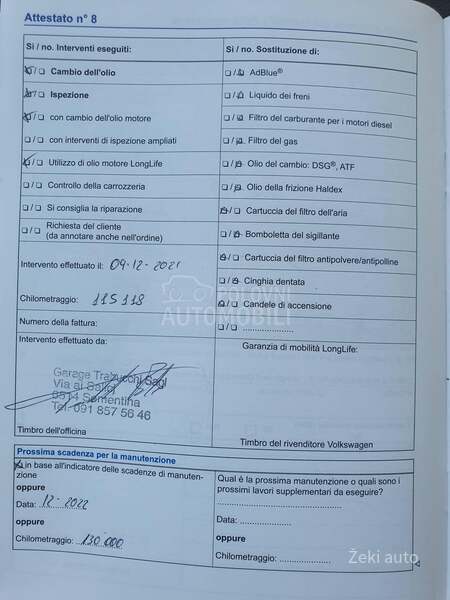 Attestato n° 8
Sì / no. Interventi eseguiti:
☒/☐ Cambio dell'olio
☒/☐ Ispezione
☒/☐ con cambio dell'olio motore
☐/☐ con interventi di ispezione ampliati
☒/☐ Utilizzo di olio motore LongLife
☐/☐ Controllo della carrozzeria
☐/☐ Si consiglia la riparazione
☐/☐ Richiesta del cliente
(da annotare anche nell'ordine)
Intervento effettuato il: 09-12-2021
Chilometraggio: 115118
Numero della fattura:
Intervento effettuato da:
Garage Trabucchi Sagl
Via ai Salici
6514 Sementina
Tel. 091 857 56 46
Timbro dell'officina
Sì / no. Sostituzione di:
☐/☒ AdBlue®
☐/☒ Liquido dei freni
☐/☒ Filtro del carburante per i motori diesel
☐/☒ Filtro del gas
☐/☒ Olio del cambio: DSG®, ATF
☐/☒ Olio della frizione Haldex
☒/☐ Cartuccia del filtro dell'aria
☐/☒ Bomboletta del sigillante
☒/☐ Cartuccia del filtro antipolvere/antipolline
☐/☒ Cinghia dentata
☐/☒ Candele di accensione
☐/☐ .....................
Garanzia di mobilità LongLife:
Timbro del rivenditore Volkswagen
POLOVNI
AUTOMOBILI
Prossima scadenza per la manutenzione
☒ in base all'indicatore delle scadenze di manuten-
zione
oppure
Data: 12-2022
oppure
Chilometraggio: 130 000
Qual è la prossima manutenzione o quali sono i
prossimi lavori supplementari da eseguire?
Data:....................
oppure
Chilometraggio: ....................
Žeki auto